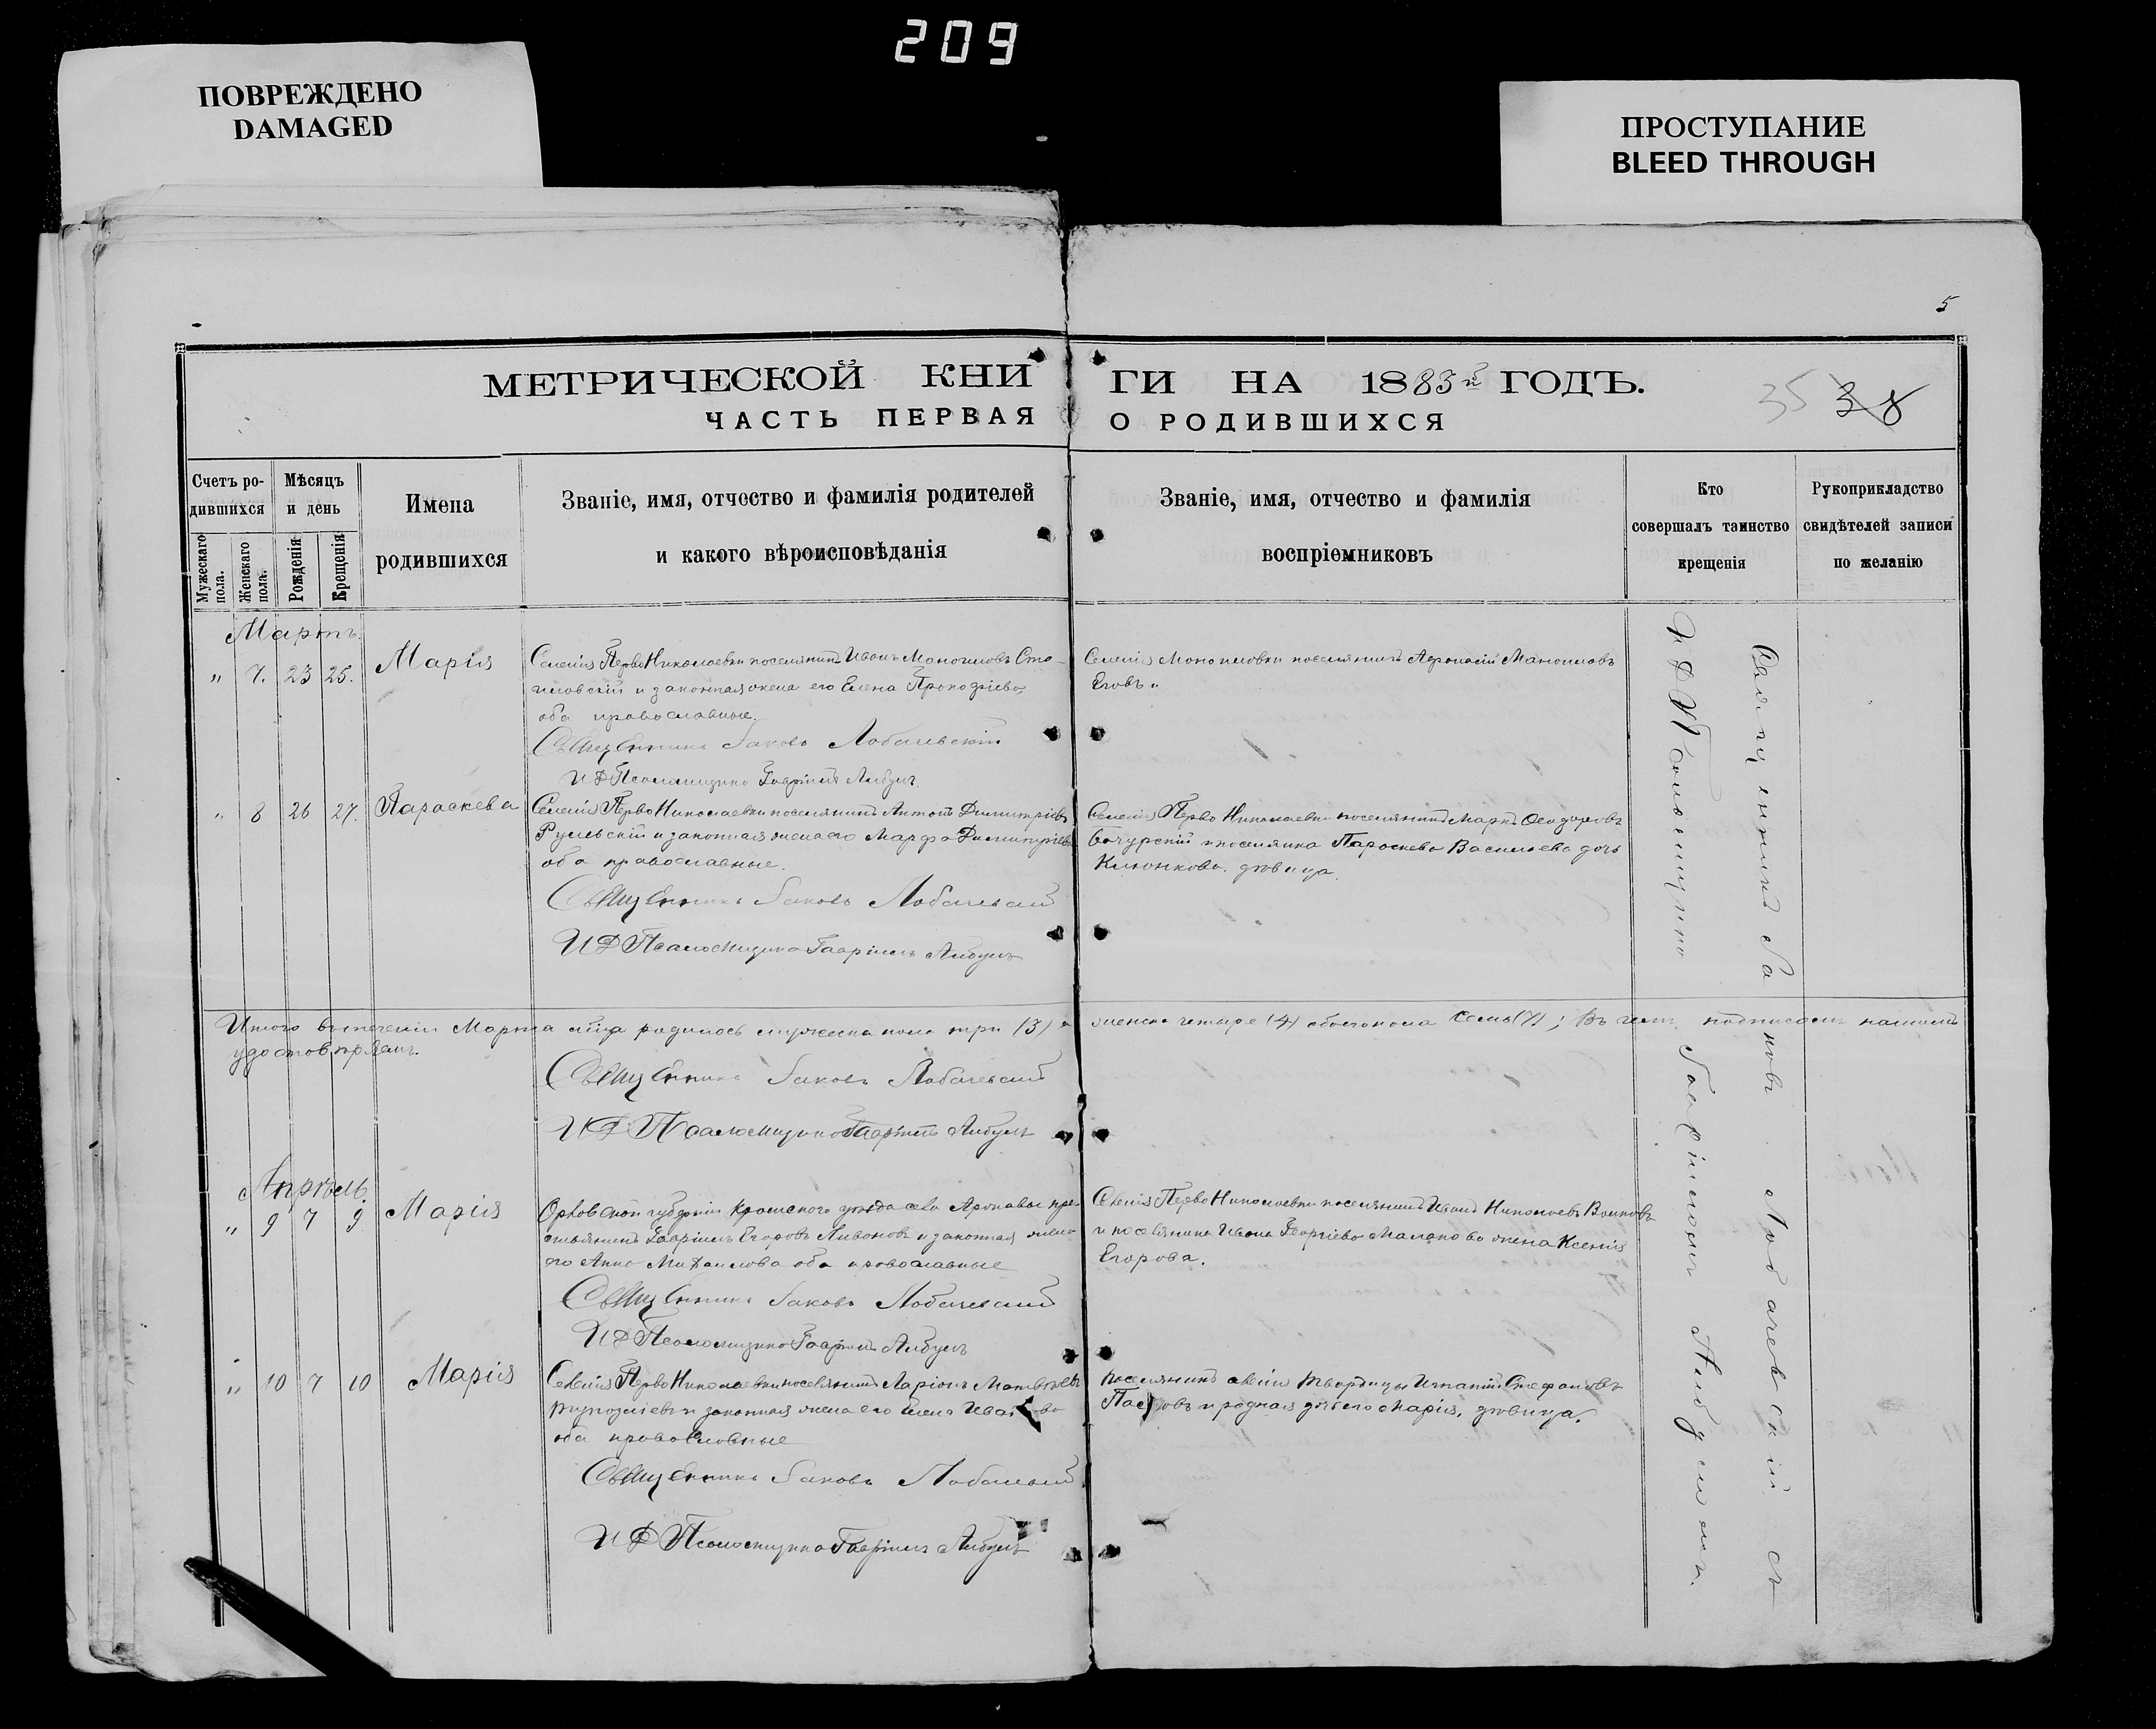 209
ПОВРЕЖДЕНО
DAMAGED
ПРОСТУПАНИЕ
BLEED THROUGH
5
МЕТРИЧЕСКОЙ КНИГИ НА 1883й ГОДЪ.
35 38
ЧАСТЬ ПЕРВАЯ О РОДИВШИХСЯ
Счетъ родившихся
Мужескаго пола.
Женскаго пола.
Мѣсяцъ и день
Рожденія
Крещенія
Имена родившихся
Званіе, имя, отчество и фамилія родителей
и какого вѣроисповѣданія
Званіе, имя, отчество и фамилія
воспріемниковъ
Кто
совершалъ таинство
крещенія
Рукоприкладство
свидѣтелей записи
по желанію
Мартъ
" 7. 23 25. Марія
Селенія Перво Николаевки поселянинъ Иванъ Маноиловъ
и законная жена его Елена
оба православные.
Священникъ Іаковъ Лобачевскій
И Д Псаломщика Гавріилъ
Селенія Маноиловки поселянинъ Афанасій Маноиловъ
" 8 26 27. Параскева
Селенія Перво Николаевки поселянинъ Антонъ Димитріевъ
и законная жена его Марфа Димитріева
оба православные.
Священникъ Іаковъ Лобачевскій
И Д Псаломщика Гавріилъ
Селенія Перво Николаевки поселянинъ Маркъ Ѳеодоровъ
и поселянка Параскева Васильева дочь
дѣвица.
Итого въ теченіи Марта мѣсяца родилось мужеска пола три (3) а женска четыре (4) обоего пола семь (7); въ чемъ подписомъ нашимъ
удостовѣряемъ.
Священникъ Іаковъ Лобачевскій
И Д Псаломщика Гавріилъ
Апрѣль.
" 9 7 9. Марія
Орловской губерніи Кромскаго уѣзда села
Гавріилъ Егоровъ Ливоновъ и законная жена
его Анна Михаилова оба православные
Священникъ Іаковъ Лобачевскій
И Д Псаломщика Гавріилъ
Селенія Перво Николаевки поселянинъ Иванъ Николаевъ Волковъ
и поселянина Ивана Георгіева жена Ксенія
Егорова.
" 10 7 10 Марія
Селенія Перво Николаевки поселянинъ Ларіонъ Матвѣевъ
и законная жена его Елена
оба православные
Священникъ Іаковъ Лобачевскій
И Д Псаломщика Гавріилъ
Поселянинъ селенія Твардицы Игнатій Стефановъ
и родная дочь его Марія, дѣвица.
Священникъ Іаковъ Лобачевскій съ
И Д Псаломщика Гавріиломъ